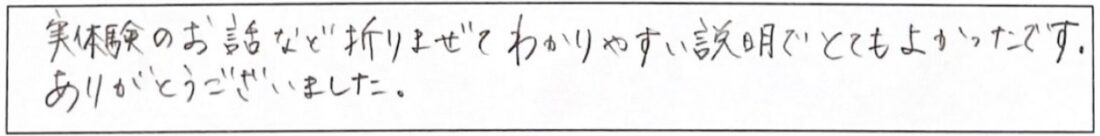 実体験のお話など折りませてわかりやすい説明でとてもよかったです.
ありがとうございました。